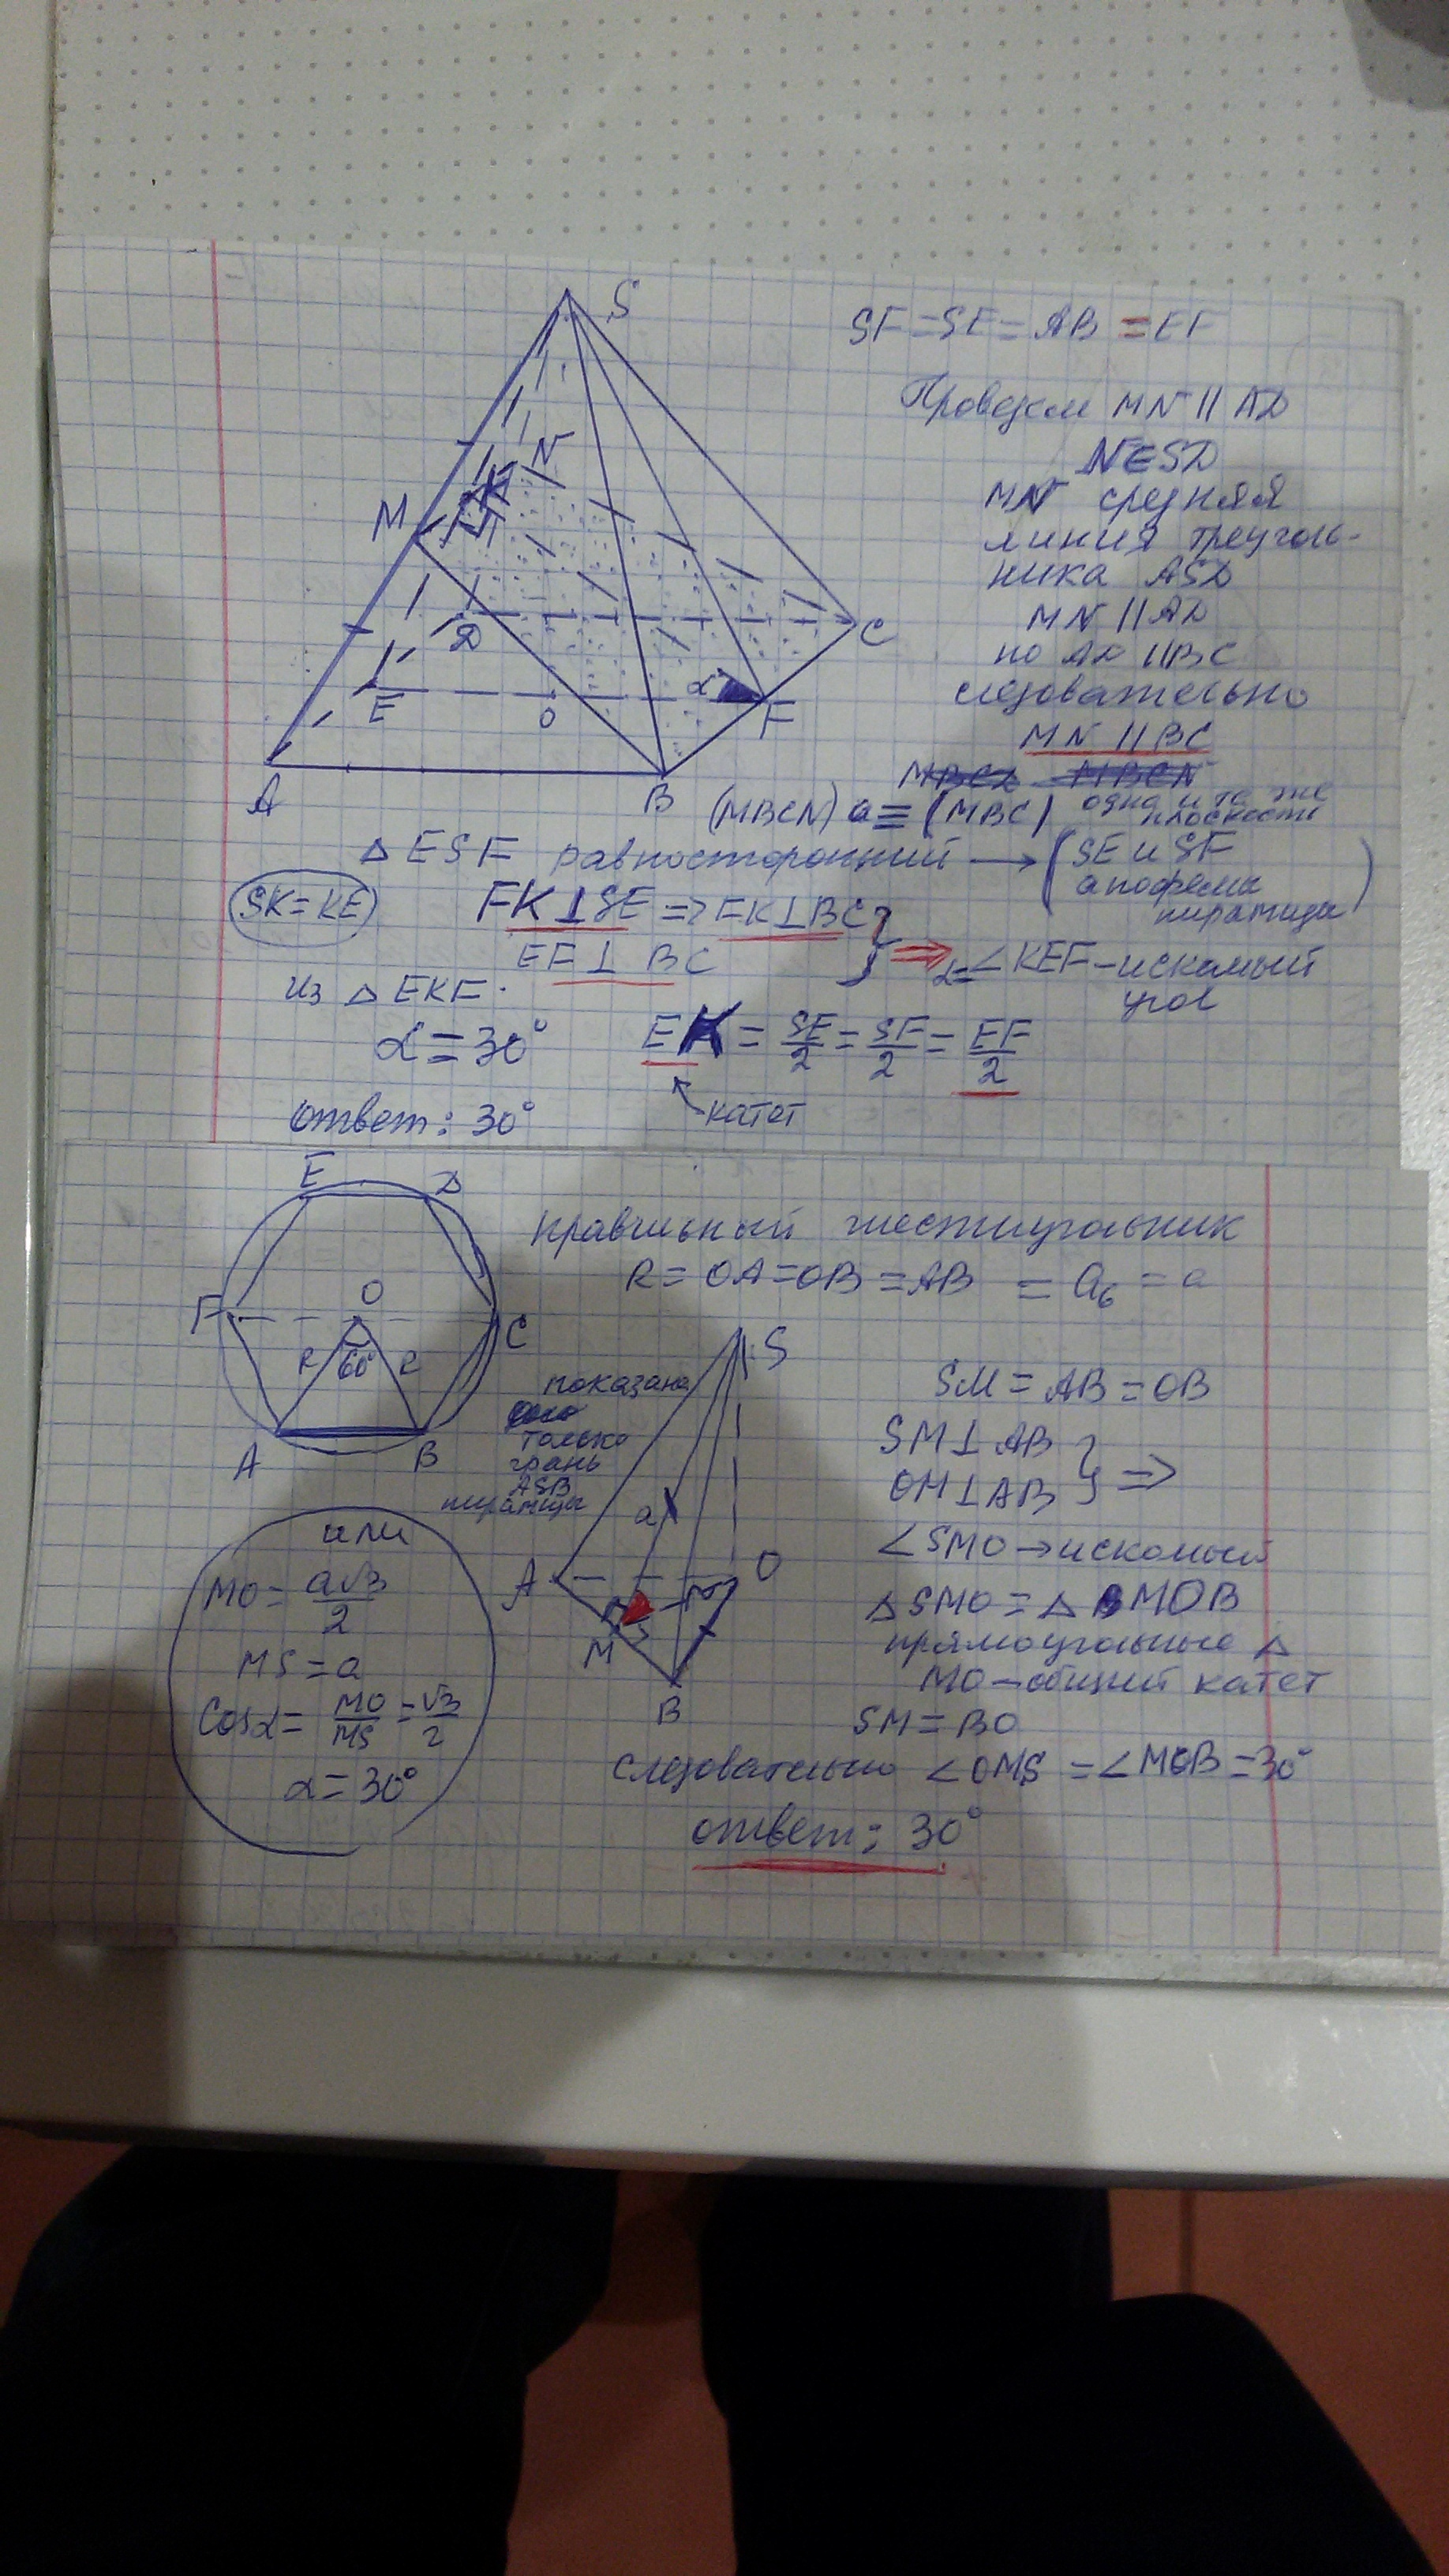 S
SF = SE = AB = EF
Проведем MN || AD
N∈SD
MN средняя
линия треуголь-
ника ASD
MN || AD
но AD || BC
следовательно
MN || BC
N
K
M
D
C
E
O
α
F
A
B
(MBCN) ≡ (MBC) одна и та же
плоскость
△ ESF равносторонний → (SE и SF
апофемы
пирамиды)
SK = KE
FK ⊥ SE => FK ⊥ BC
EF ⊥ BC
} => α = ∠KEF – искомый
угол
из △ EKF.
α = 30°
EK = SE/2 = SF/2 = EF/2
катет
ответ: 30°
E D
F O C
R 60° R
A B
правильный шестиугольник
R = OA = OB = AB = a₆ = a
S
показана
только
грань
ASB
пирамиды
a
A
O
M
B
SM = AB = OB
SM ⊥ AB
OM ⊥ AB } =>
∠SMO → искомый
△ SMO = △ MOB
прямоугольные △
MO – общий катет
SM = BO
следовательно ∠OMS = ∠MOB = 30°
ответ: 30°
или
MO = a√3/2
MS = a
Cosα = MO/MS = √3/2
α = 30°